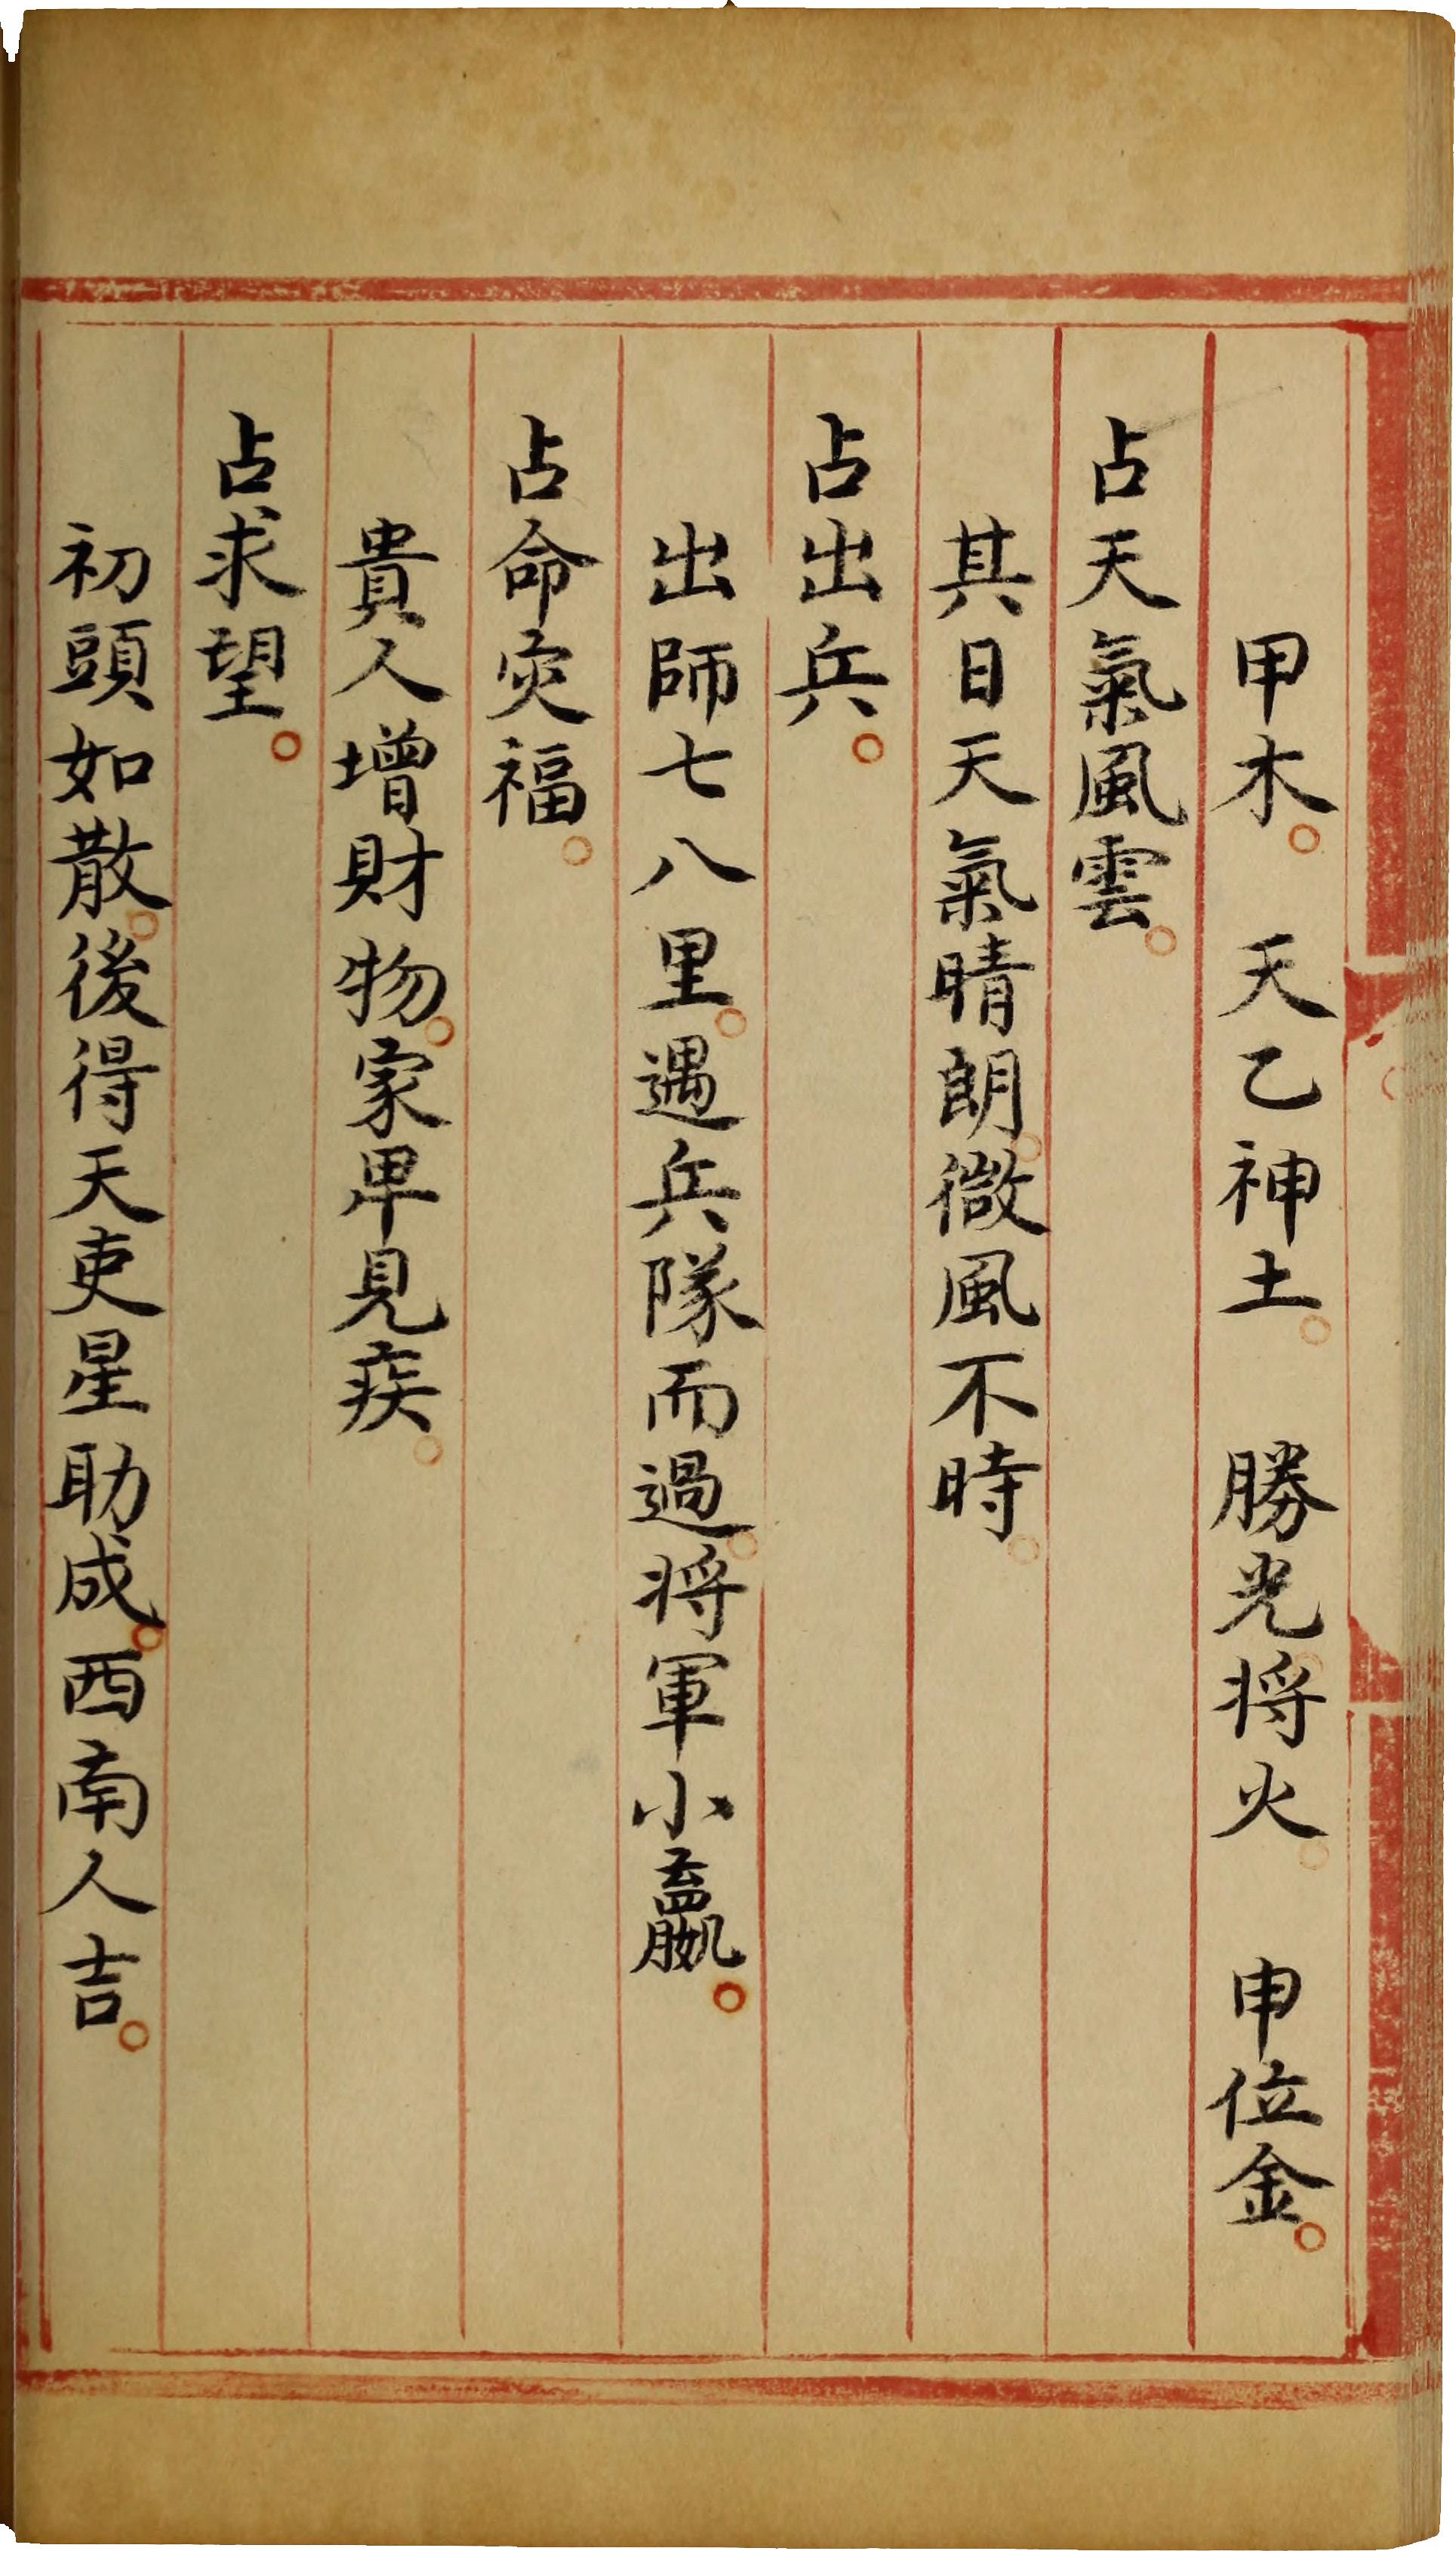 甲木。　天乙神土。　勝光将火。　申位金。
占天氣風雲。
其日天氣晴朗。微風不時。
占出兵。
出師七八里。遇兵隊而過。将軍小嬴。
占命灾福。
貴人增財物。家卑見疾。
占求望。
初頭如散。後得天吏星助成。西南人吉。